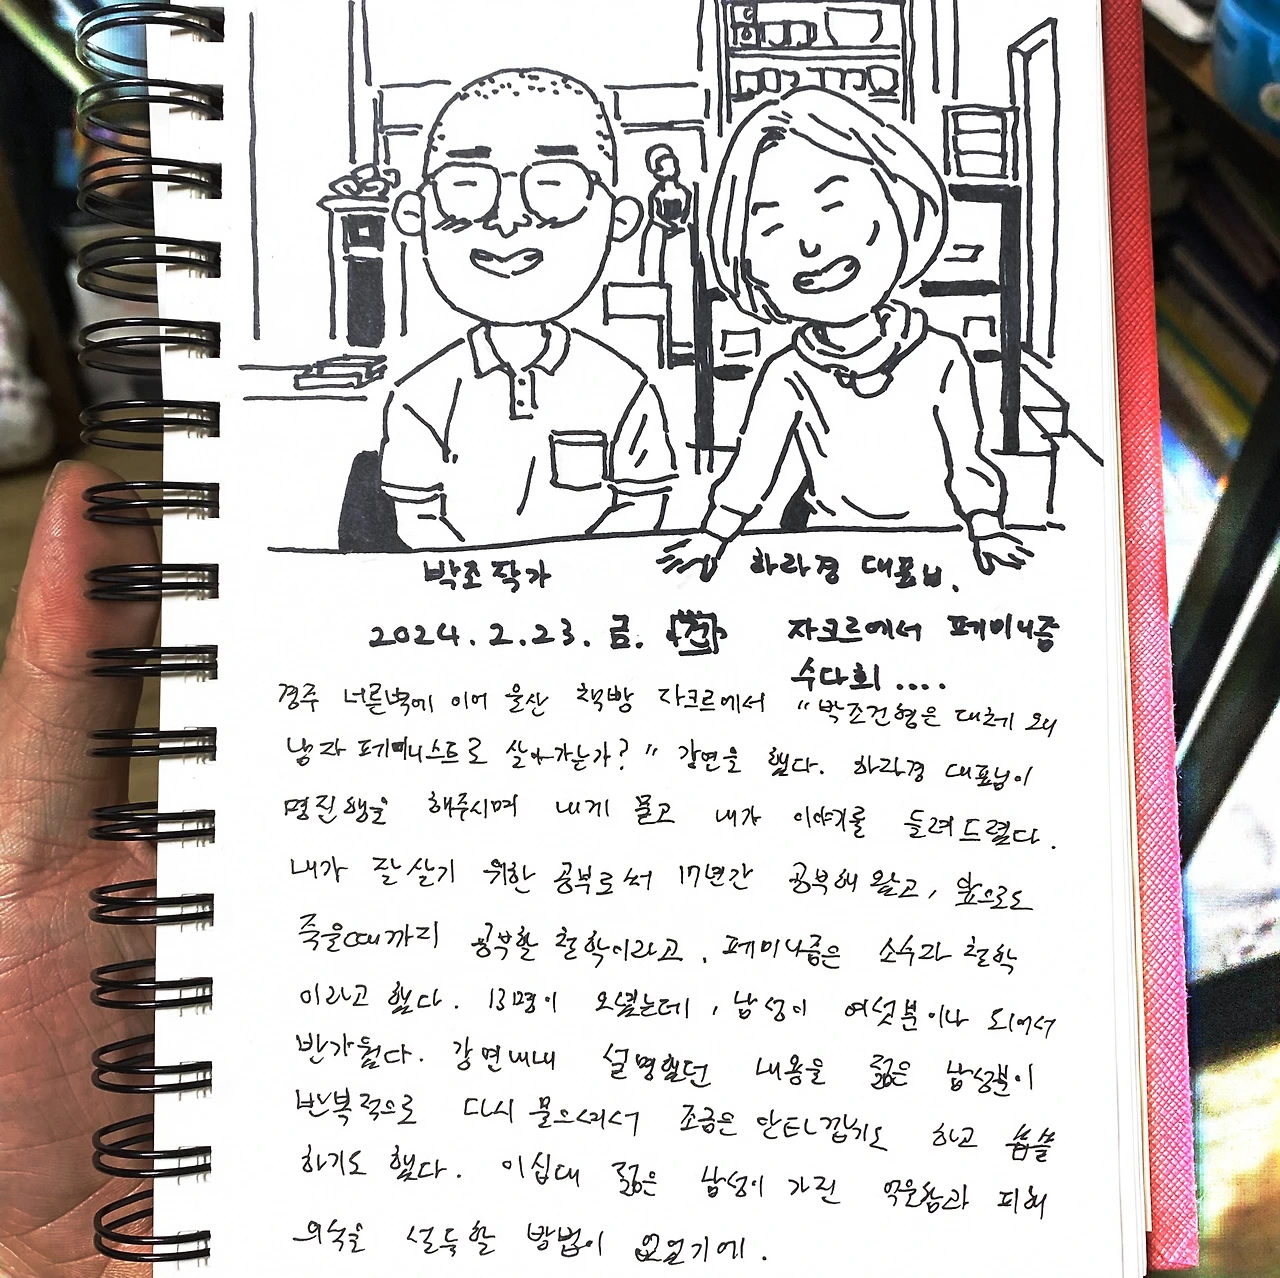 박조작가
하라경 대표님.
2024.2.23.금. 건
자크르에서 페미니즘
수다회....
경주 너른벽에 이어 울산 책방 자크르에서 "박조건형은 대체 왜
남자 페미니스트로 살아가는가?" 강연을 했다. 하라경 대표님이
명진행을 해주시며 내게 묻고 내가 이야기를 들려드렸다.
내가 잘 살기 위한 공부로써 17년간 공부해 왔고, 앞으로도
죽을때까지 공부할 철학이라고. 페미니즘은 소수자 철학
이라고 했다. 13명이 오셨는데, 남성이 여섯분이나 되어서
반가웠다. 강연내내 설명했던 내용을 젊은 남성분이
반복적으로 다시 물으셔서 조금은 안타깝기도 하고 씁쓸
하기도 했다. 이십대 젊은 남성이 가진 억울함과 피해
의식을 설득할 방법이 없었기에.